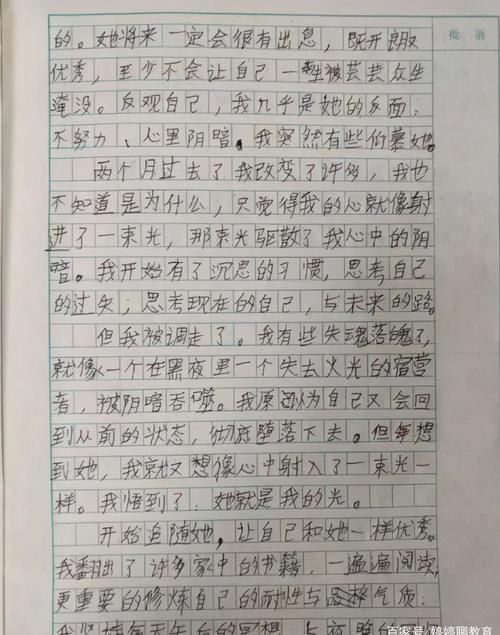 批语
的。她将来一定会很有出息，既开朗又
优秀，至少不会让自己一生被芸芸众生
淹没。反观自己，我几乎是她的反面：
不努力、心里阴暗。我突然有些仰慕她。
两个月过去了，我改变了许多，我也
不知道是为什么，只觉得我的心就像射
进了一束光，那束光驱散了我心中的阴
暗。我开始有了沉思的习惯，思考自己
的过失；思考现在的自己，与未来的路。
但我被调走了。我有些失魂落魄了，
就像一个在黑夜里一个失去火光的宿营
者，被阴暗吞噬。我原以为自己又会回
到从前的状态，彻底堕落下去。但每想
到她，我就又想像心中射入了一束光一
样。我悟到了：她就是我的光。
开始追随她，让自己和她一样优秀。
我翻出了许多家中的书籍，一遍遍阅读，
更重要的修炼自己的耐性与品格气质：
百家号/婷婷聊教育